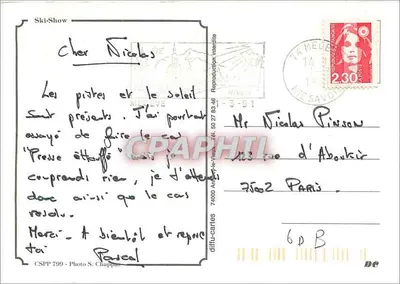 Ski-Show
Cher Nicolas
Les pistes et le soleil
sont présents. J'ai pourtant
essayé de faire le cas
"Presse étouffé" mais je
comprends rien, je t'attends
donc ainsi que le cas
résolu.
Merci - A bientôt et repose
toi
Pascal
CSPP 799 - Photo S. Chappaz
diffu-cartes
74000
50 27 83 46
Reproduction interdite
MEGEVE
-3-91
74 MEGEVE
HTE SAVOIE
2,30
CPAPHIL
Mr Nicolas Pinson
123 rue d'Aboukir
75002 Paris.
6D B